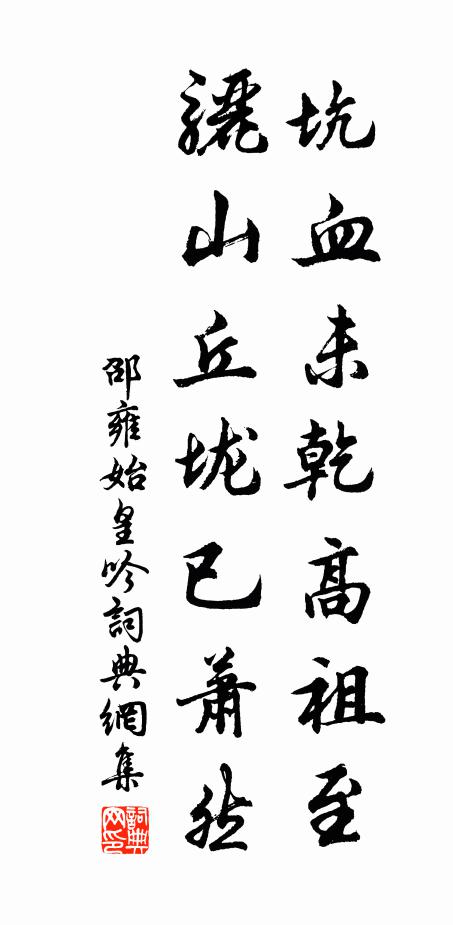 坑血未乾高祖至
驪山丘垅已蕭然
邵雍始皇吟詞典網集
詞典网印